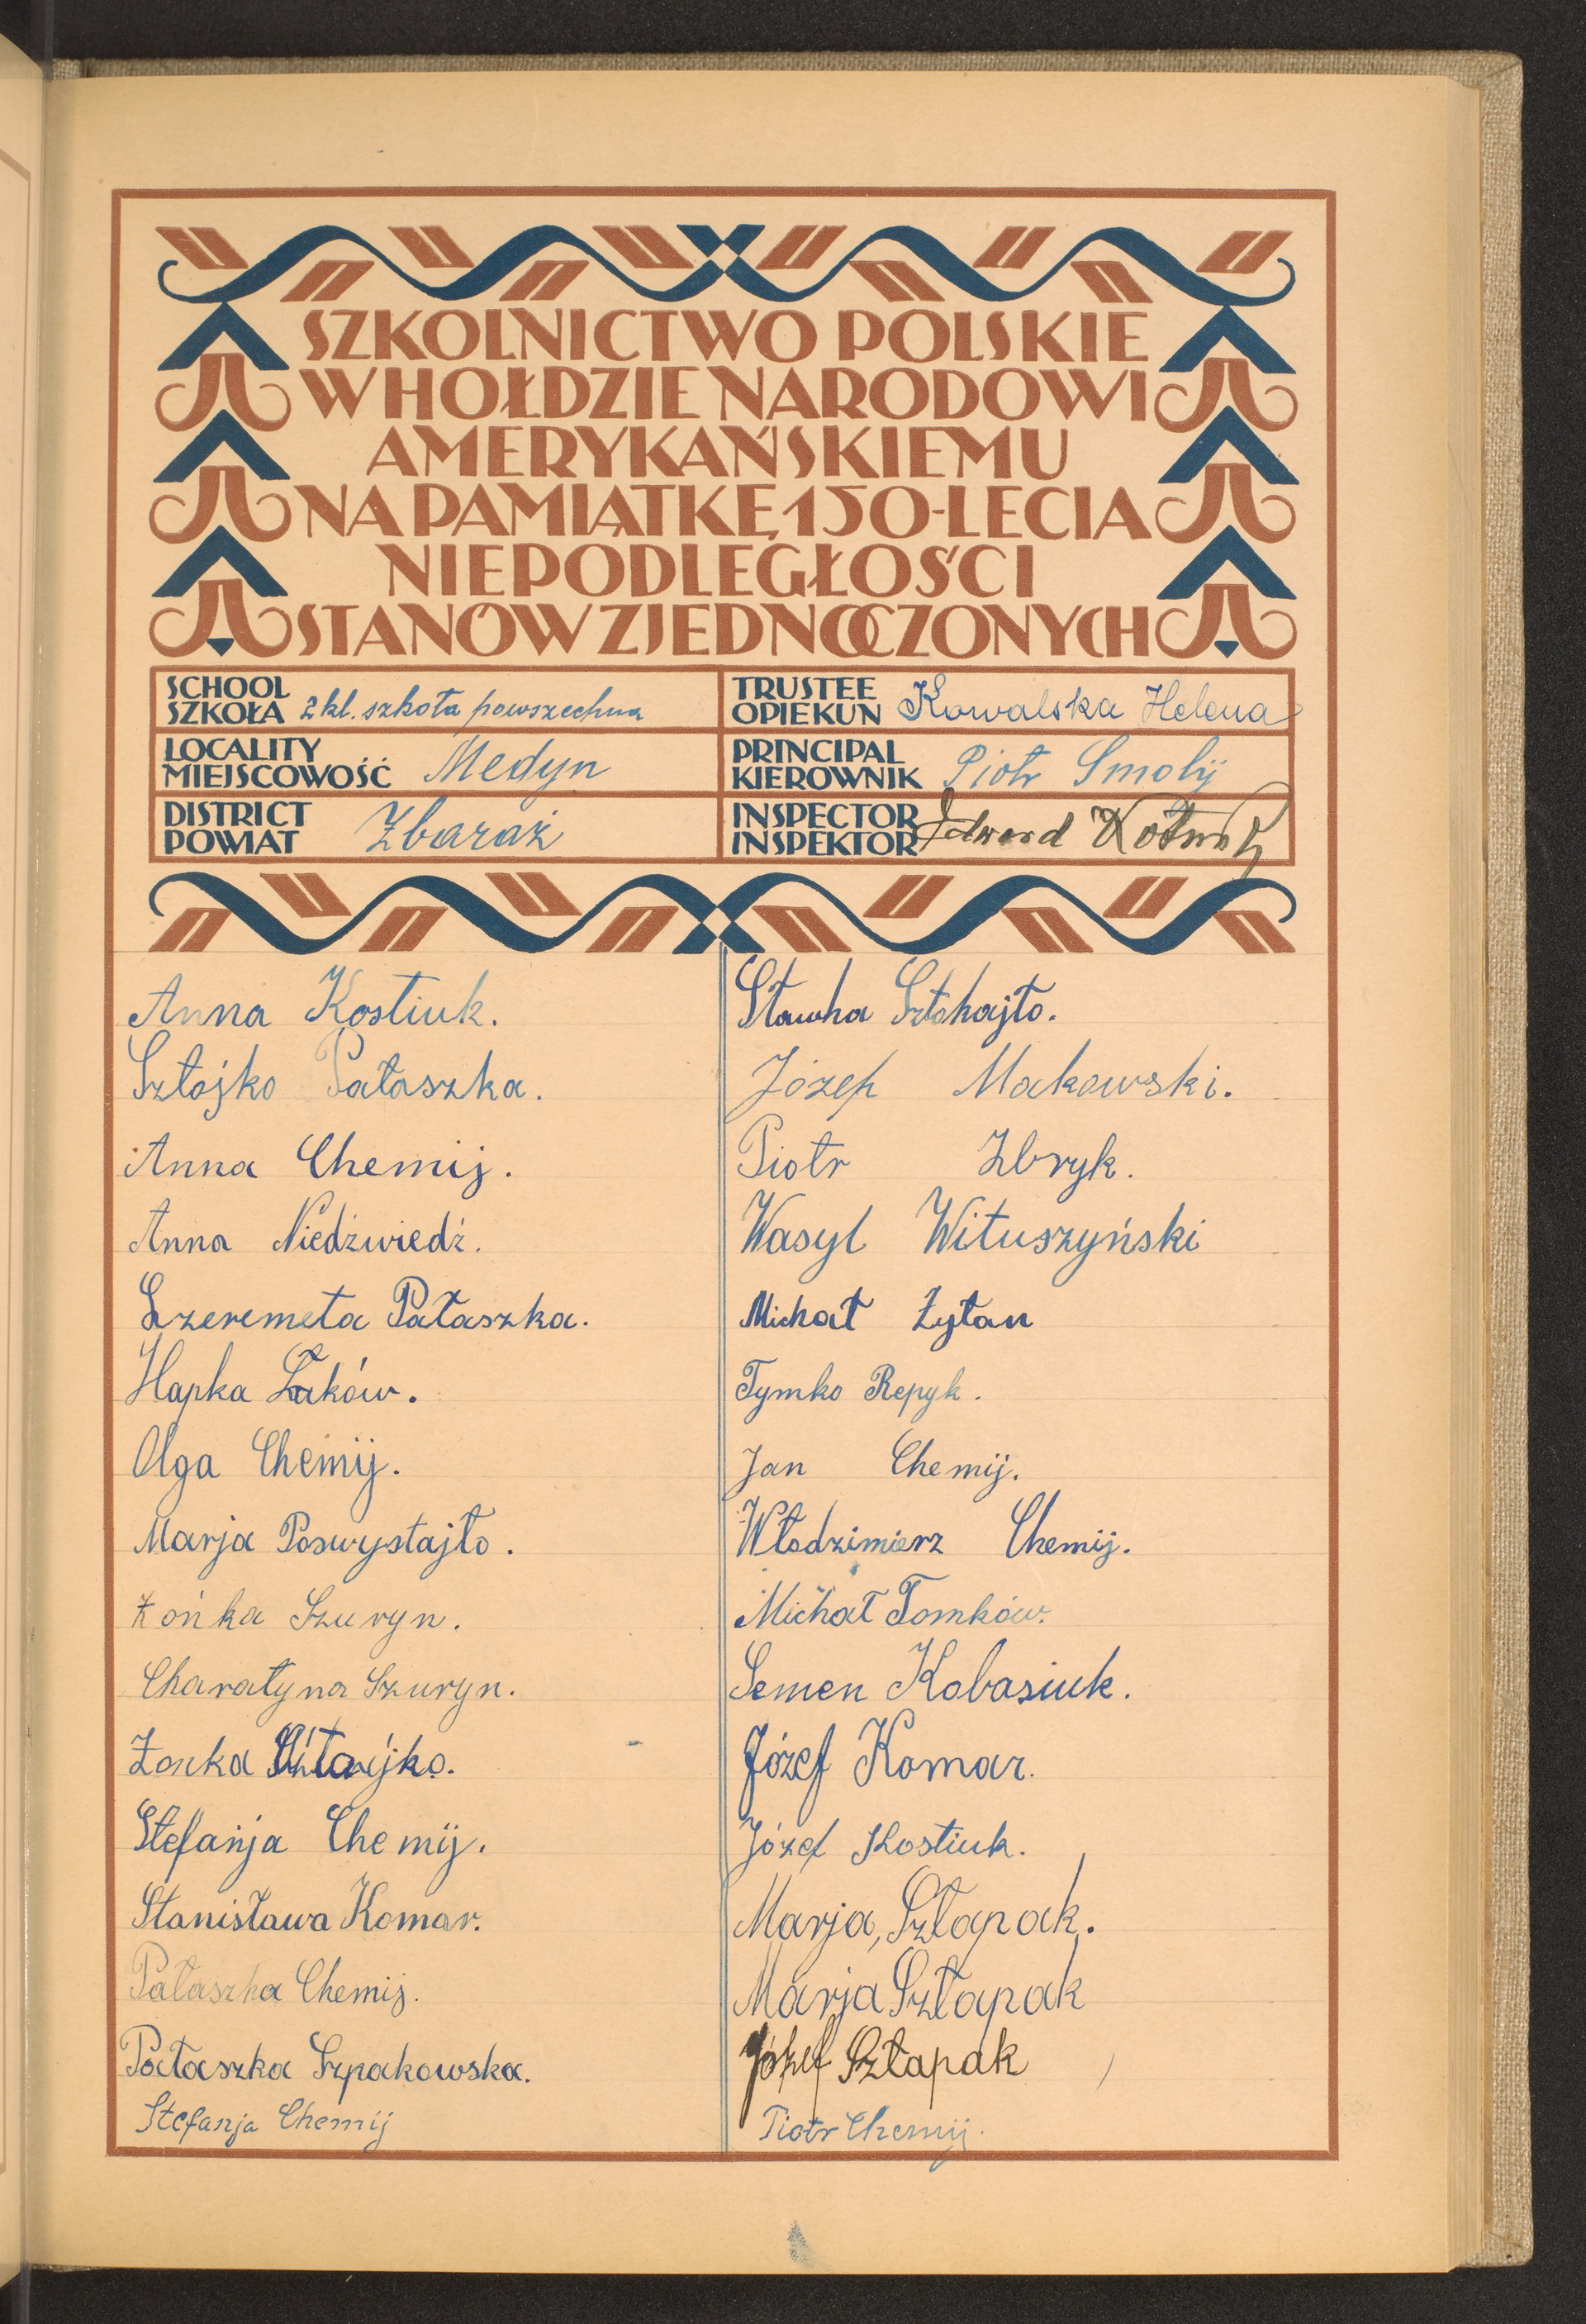 SZKOLNICTWO POLSKIE
W HOŁDZIE NARODOWI
AMERYKAŃSKIEMU
NA PAMIĄTKĘ 150-LECIA
NIEPODLEGŁOŚCI
STANÓW ZJEDNOCZONYCH
SCHOOL
SZKOŁA 2 kl. szkoła powszechna
TRUSTEE
OPIEKUN Kowalska Helena
LOCALITY
MIEJSCOWOŚĆ Medyn
PRINCIPAL
KIEROWNIK Piotr Smolij
DISTRICT
POWIAT Zbaraż
INSPECTOR
INSPEKTOR Edward
Anna Kostiuk.
Sztojko Pałaszka.
Anna Chemij.
Anna Niedźwiedź.
Szeremeta Pałaszka.
Hapka Łaków.
Olga Chemij.
Marja Poswystajło.
Żońka Szuryn.
Charatyna Szuryn.
Żonka
Stefanja Chemij.
Stanisława Komar.
Pałaszka Chemij.
Pałaszka Szpakowska.
Stefanja Chemij
Sławka
Józef Makowski.
Piotr Zbryk.
Wasyl Wituszyński
Michał Żytan
Tymko Repyk.
Jan Chemij.
Włodzimierz Chemij.
Michał Tomków.
Semen Kobasiuk.
Józef Komar.
Józef Kostiuk.
Marja, Szłapak.
Marja Szłapak
Józef Szłapak
Piotr Chemij.